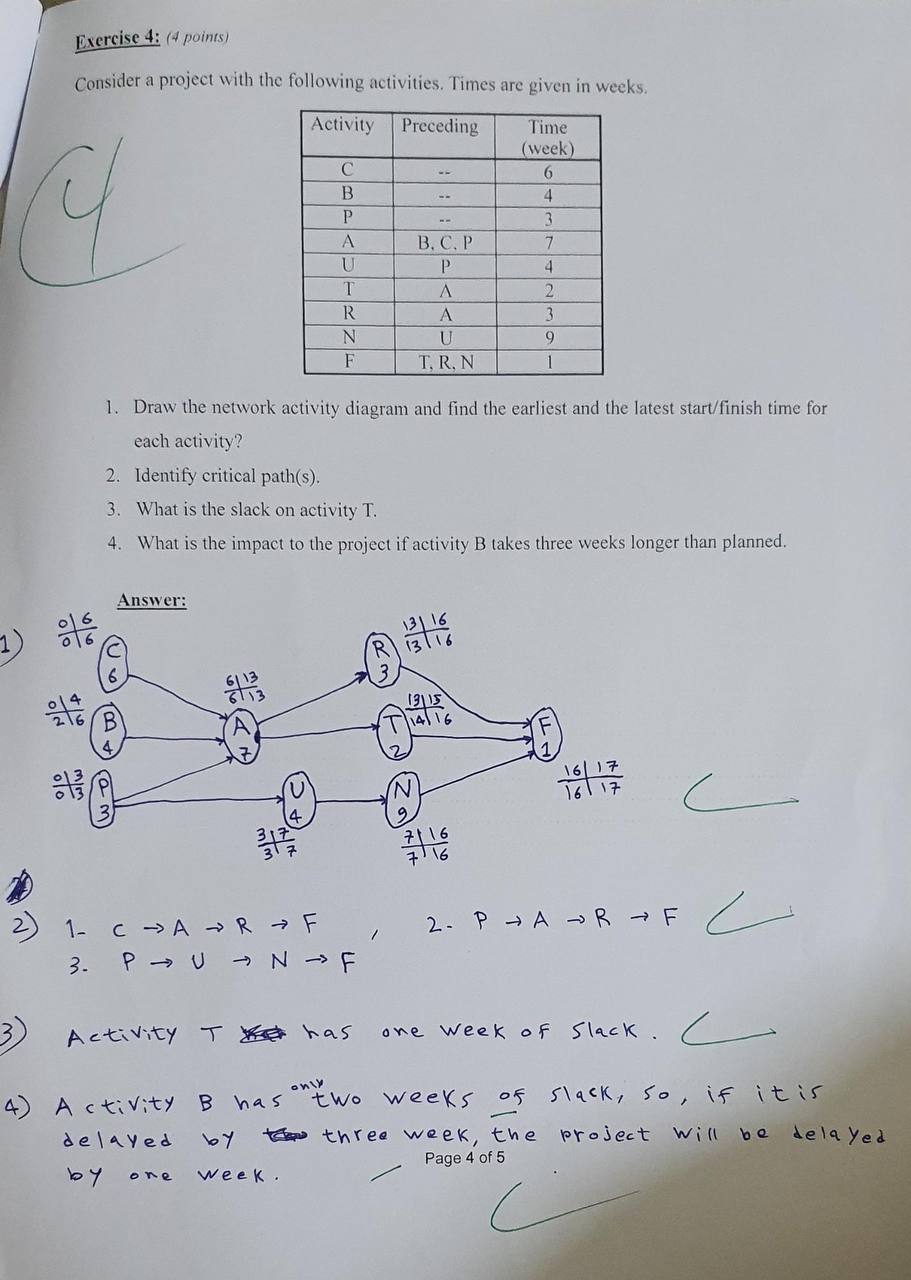 Exercise 4: (4 points)
Consider a project with the following activities. Times are given in weeks.
4
Activity Preceding Time (week)
C -- 6
B -- 4
P -- 3
A B, C, P 7
U P 4
T A 2
R A 3
N U 9
F T, R, N 1
1. Draw the network activity diagram and find the earliest and the latest start/finish time for
each activity?
2. Identify critical path(s).
3. What is the slack on activity T.
4. What is the impact to the project if activity B takes three weeks longer than planned.
Answer:
1)
0 6
0 6
C
6
0 4
2 6
B
4
0 3
0 3
P
3
6 13
6 13
A
7
3 7
3 7
U
4
13 16
13 16
R
3
13 15
14 16
T
2
7 16
7 16
N
9
16 17
16 17
F
1
2) 1- C → A → R → F , 2- P → A → R → F
3. P → U → N → F
3) Activity T has one week of slack.
4) Activity B has only two weeks of slack, so, if it is
delayed by three week, the project will be delayed
Page 4 of 5
by one week.